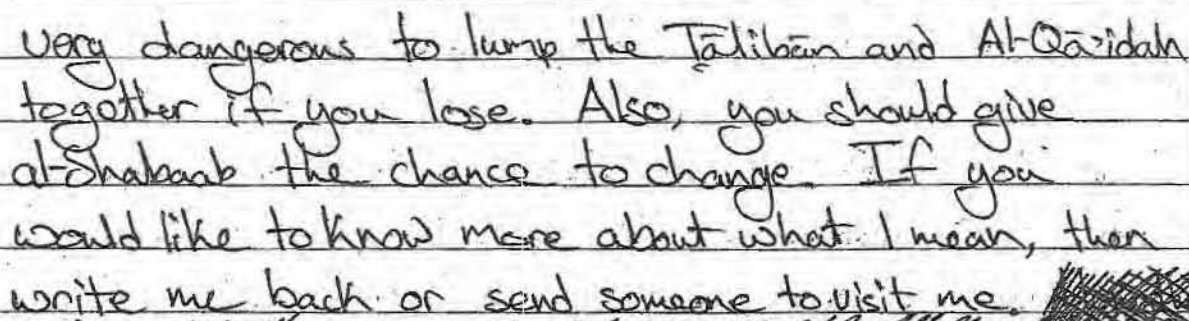 very dangerous to lump the Ṭālibān and Al-Qā'idah
together if you lose. Also, you should give
al-Shabaab the chance to change. If you
would like to know more about what I mean, then
write me back or send someone to visit me.